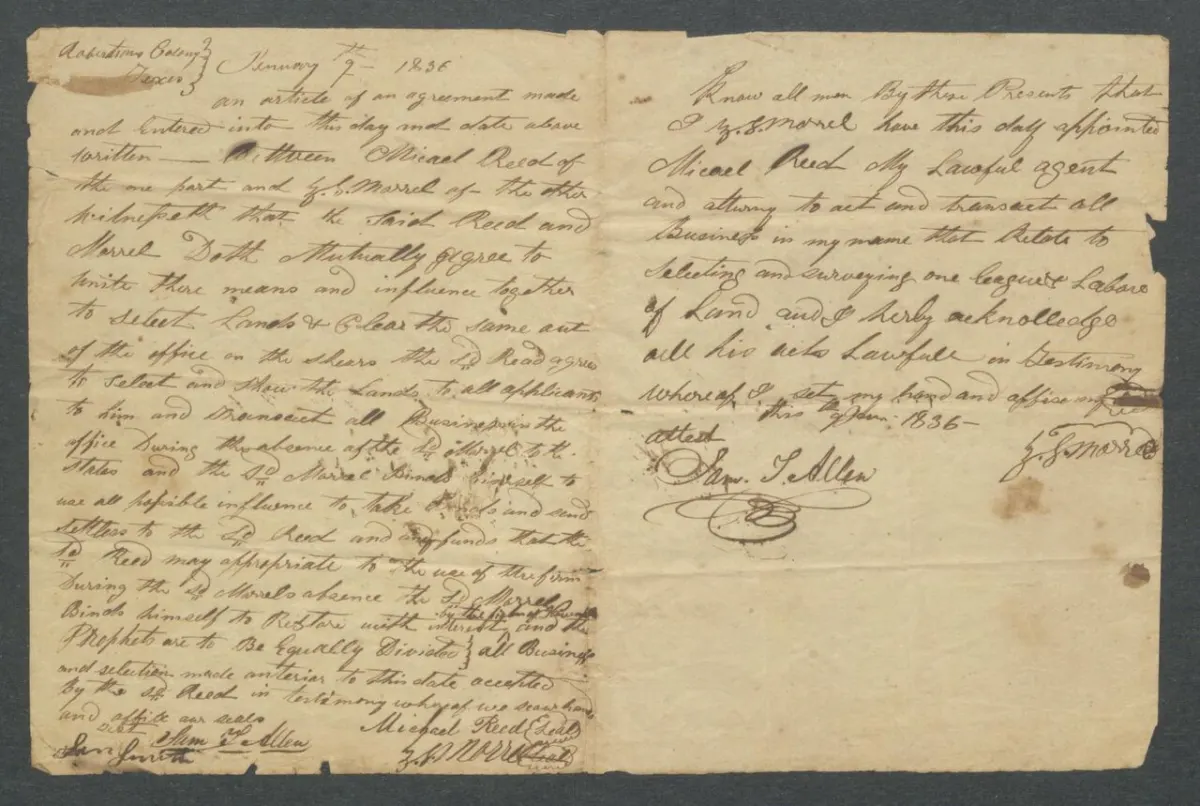 Robertsons Colony }
Texas }
Jenuary 9th 1836
an article of an agreement made
and Entered into this day and date above
written — Between Micael Reed of
the one part and Z. S. Morrel of the other
witnesseth that the said Reed and
Morrel Doth Mutually agree to
unite there means and influence together
to select Lands & Clear the same out
of the office on the shears the Sd Read agree
to select and show the Lands to all applicants
to him and transact all Business in the
office During the absence of the Sd Morrel to the
states and the Sd Morrel Binds himself to
use all possible influence to take and send
settlers to the Sd Reed and any funds that the
Sd Reed may appropriate to the use of the firm
During the Sd Morrels absence the Sd Morrel
Binds himself to Restore with interest by the and the
Prophets are to Be Equally Divided } all Business
and selection made anterior to this date accepted
By the Sd Reed in testimony whereof we set our hands
and affice our seals
attest Sam T Allen Michael Reed Seal
Smith Z. S. Morrel Seal
Know all men By these Presents that
I Z. S. Morrel have this day appointed
Micael Reed My Lawful agent
and atturny to act and transact all
Business in my name that Relate to
selecting and surveying one league & Labore
of Land and I herby acknolledge
all his acts Lawfull in testimony
whereof I set my hand and affice my
this 9th Jan. 1836 —
attest
Sam. T Allen Z. S. Morrel